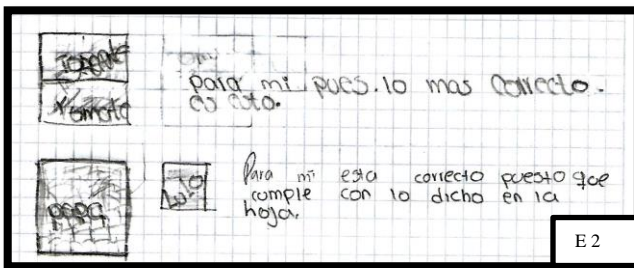 Tomate
Tomate
para mi pues.lo mas correcto.
es esto.
papa
Lulo
Para mi esta correcto puesto que
cumple con lo dicho en la
hoja.
E 2